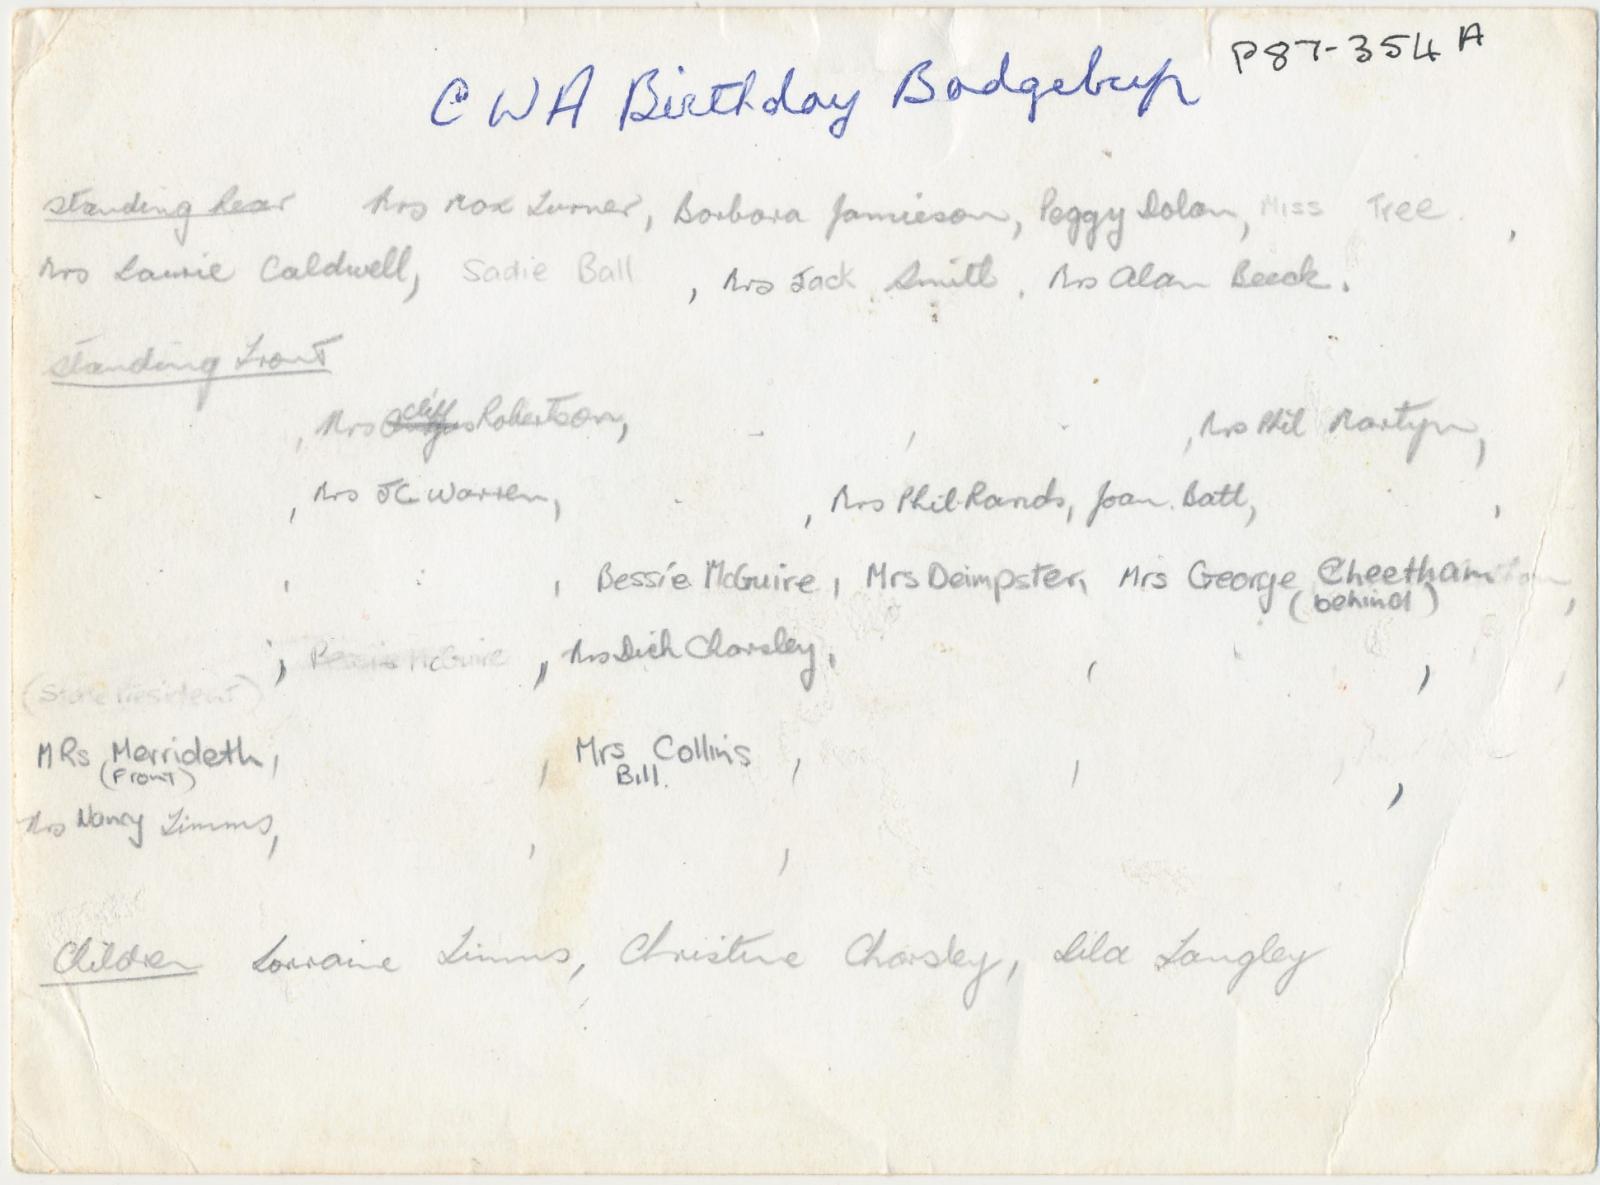 P87-354 A
CWA Birthday Badgebup
Standing Rear Mrs Max Turner, Barbara Jamieson, Peggy Dolan, Miss Tree,
Mrs Laurie Caldwell, Sadie Ball, Mrs Jack Smith, Mrs Alan Beeck.
Standing Front
, Mrs Cliff Robertson, , , Mrs Phil Martyn,
, Mrs J.C. Warren, , Mrs Phil Rands, Joan Batt, ,
, , Bessie McGuire, Mrs Deimpster, Mrs George Cheetham,
(behind)
, Bessie McGuire, Mrs Dick Charsley, , ,
(State President)
MRs Merrideth, , Mrs Collins, , ,
(Front) Bill.
Mrs Nancy Timms, , ,
Children Lorraine Timms, Christine Charsley, Lila Langley